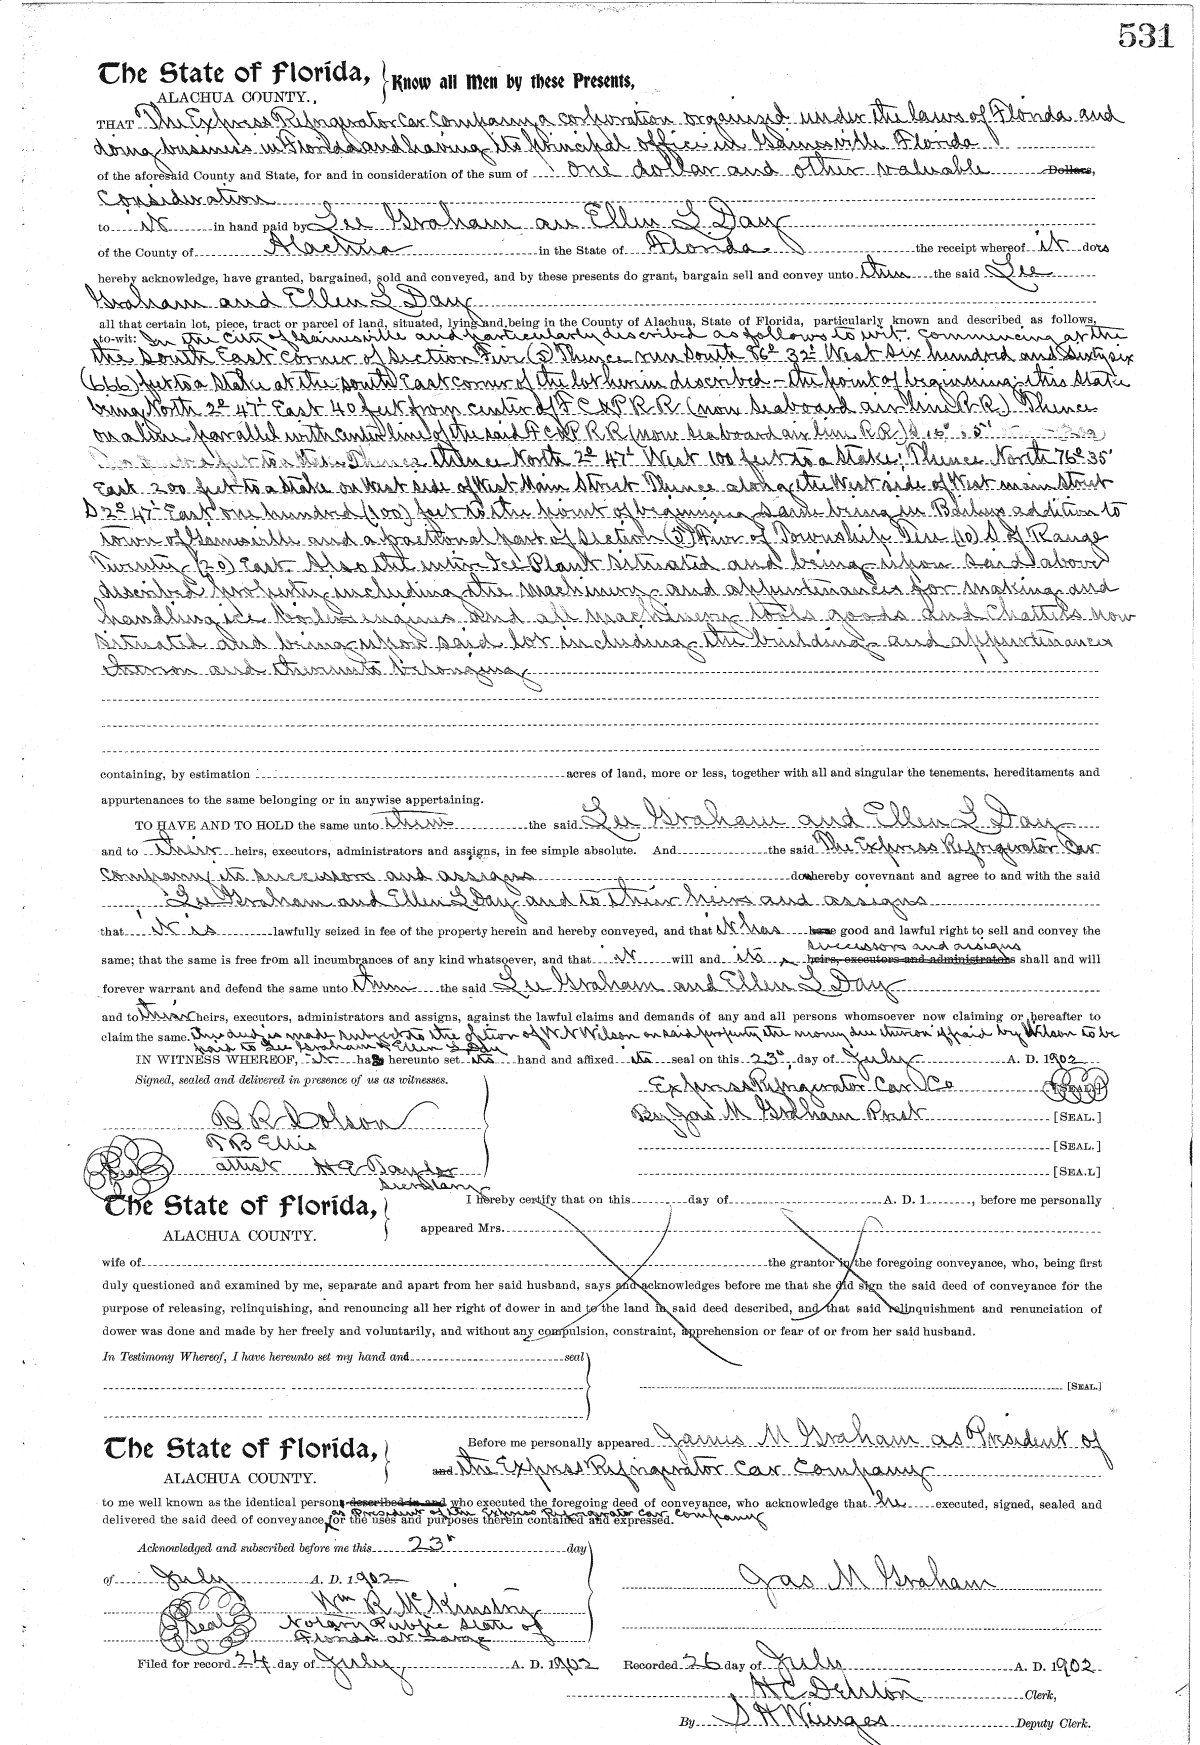 531
The State of Florida, Know all Men by these Presents,
ALACHUA COUNTY.
THAT The Express Refrigerator Car Company, a corporation organized under the laws of Florida and
doing business in Florida and having its principal office in Gainesville Florida
of the aforesaid County and State, for and in consideration of the sum of one dollar and other valuable Dollars,
Consideration
to it in hand paid by Lee Graham an Ellen L Day
of the County of Alachua in the State of Florida the receipt whereof it does
hereby acknowledge, have granted, bargained, sold and conveyed, and by these presents do grant, bargain sell and convey unto them the said Lee
Graham and Ellen L Day
all that certain lot, piece, tract or parcel of land, situated, lying and being in the County of Alachua, State of Florida, particularly known and described as follows,
to-wit: In the City of Gainesville and particularly described as follows to wit: Commencing at the
the South East Corner of Section Five (5) Thence run South 86° 32' West six hundred and sixty six
(666) feet to a Stake at the South East corner of the lot herein described – the point of beginning; this Stake
being North 2° 47' East 40 feet from center of F C & P R R (now Seaboard air line R R) Thence
on a line parallel with center line of the said F C & P R R (now Seaboard air line R R)
feet to a Stake Thence thence North 2° 47' West 100 feet to a Stake; Thence North 76° 35'
East 200 feet to a Stake on West side of West Main Street Thence along the West side of West main Street
S 2° 47' East one hundred (100) feet to the point of beginning Same being in Baileys addition to
town of Gainesville and a fractional part of Section (5) Five of Township Ten (10) S of Range
Twenty (20) East. Also the entire Ice Plant situated and being upon said above
described property including the machinery and appurtenances for making and
handling ice boilers engines and all machinery tools goods and Chattels now
situated and being upon said lot including the building and appurtenances
thereon and thereunto belonging
containing, by estimation acres of land, more or less, together with all and singular the tenements, hereditaments and
appurtenances to the same belonging or in anywise appertaining.
TO HAVE AND TO HOLD the same unto them the said Lee Graham and Ellen L Day
and to their heirs, executors, administrators and assigns, in fee simple absolute. And the said The Express Refrigerator Car
Company its successors and assigns do hereby covevnant and agree to and with the said
Lee Graham and Ellen L Day and to their heirs and assigns
that it is lawfully seized in fee of the property herein and hereby conveyed, and that it has have good and lawful right to sell and convey the
successors and assigns
same; that the same is free from all incumbrances of any kind whatsoever, and that it will and its heirs, executors and administrators shall and will
forever warrant and defend the same unto them the said Lee Graham and Ellen L Day
and to their heirs, executors, administrators and assigns, against the lawful claims and demands of any and all persons whomsoever now claiming or hereafter to
claim the same. this deed is made subject to the option of W N Wilson on said property the money due thereon if paid by Wilson to be
paid to Lee Graham & Ellen L Day
IN WITNESS WHEREOF, it has hereunto set its hand and affixed its seal on this 23d, day of July A. D. 1902
Signed, sealed and delivered in presence of us as witnesses. Express Refrigerator Car Co [SEAL.]
B R Colson By Jas M Graham Prest [SEAL.]
T B Ellis [SEAL.]
Seal attest H E Taylor [SEAL]
Secretary
The State of Florida, I hereby certify that on this day of A. D. 1 , before me personally
ALACHUA COUNTY. appeared Mrs.
wife of the grantor in the foregoing conveyance, who, being first
duly questioned and examined by me, separate and apart from her said husband, says and acknowledges before me that she did sign the said deed of conveyance for the
purpose of releasing, relinquishing, and renouncing all her right of dower in and to the land in said deed described, and that said relinquishment and renunciation of
dower was done and made by her freely and voluntarily, and without any compulsion, constraint, apprehension or fear of or from her said husband.
In Testimony Whereof, I have hereunto set my hand and seal
[SEAL.]
The State of Florida, Before me personally appeared James M Graham as President of
ALACHUA COUNTY. and the Express Refrigerator Car Company
to me well known as the identical persons described in and who executed the foregoing deed of conveyance, who acknowledge that he executed, signed, sealed and
as President of the Express Refrigerator Car Company
delivered the said deed of conveyance for the uses and purposes therein contained and expressed.
Acknowledged and subscribed before me this 23d day
of July A. D. 1902 Jas M Graham
Wm R McKinstry
Seal Notary Public State of
Florida at Large
Filed for record 24 day of July A. D. 1902 Recorded 26 day of July A. D. 1902
H C Denton Clerk,
By S H Wienges Deputy Clerk.